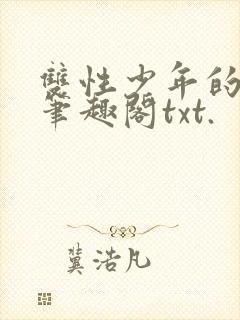 雙性少年的
筆趣閣txt.
冀浩凡